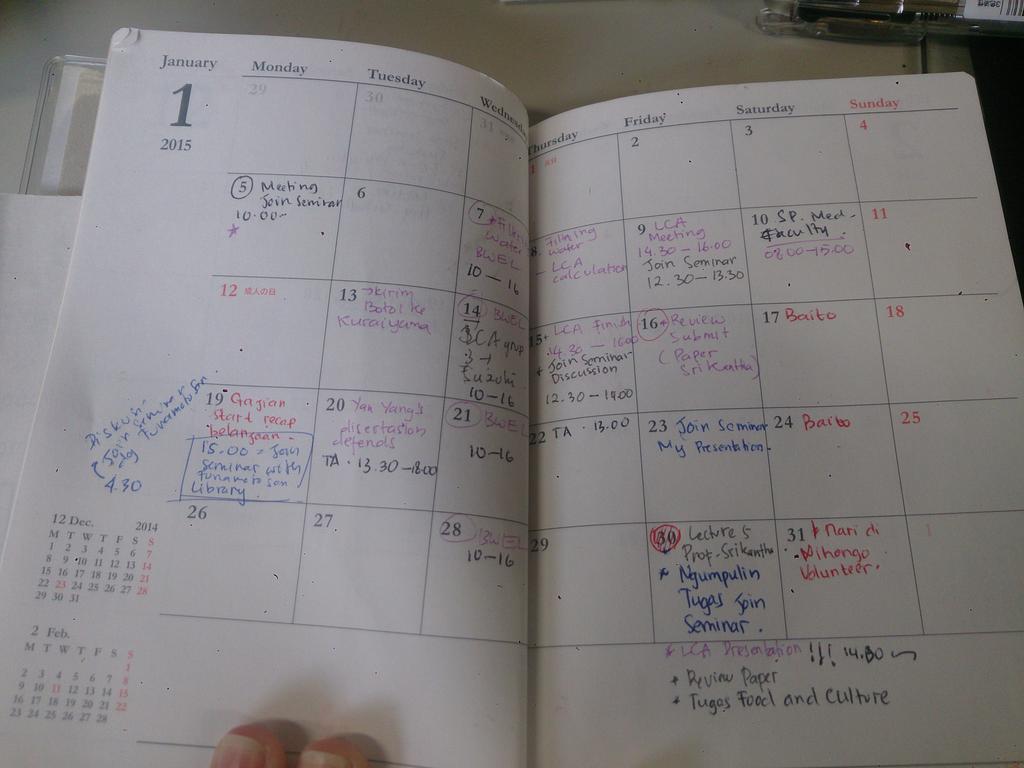 January
1
2015
Monday
Tuesday
Wednesd
Thursday
Friday
Saturday
Sunday
29
30
31
1
2
3
4
5 Meeting
Join Seminar
10.00-
6
7
Water
BWEL
10-16
8.
Filming
water
- LCA
calculation
9 LCA
Meeting
14.30-16.00
Join Seminar
12.30-13.30
10 SP. Med-
Faculty.
08.00-15.00
11
12 成人の日
13 →kirim
Botol ke
Kuraiyama
14 BWEL
10-16
15
LCA Finish
14.30-
* Join Seminar
Discussion
12.30-14.00
16 * Review
Submit
(Paper
Srikantha)
17 Baito
18
19 Gajian
start recap
belanjaan.
15.00 = Join
Seminar with
Funamoto san
Library.
Diskusi-
Join Seminar
Funamoto San
4.30
20 Yan Yang's
disertasion
defends
TA. 13.30-18.00
21 BWEL
10-16
22 TA. 13.00
23 Join Seminar
My Presentation.
24 Baito
25
26
27
28 BWEL
10-16
29
30 Lecture 5
Prof. Srikantha
* Ngumpulin
Tugas Join
Seminar.
31 * Mari di
Nihongo
Volunteer.
1
* LCA Presentation !!! 14.30
* Review Paper
* Tugas Food and Culture
12 Dec. 2014
M T W T F S S
1 2 3 4 5 6 7
8 9 10 11 12 13 14
15 16 17 18 19 20 21
22 23 24 25 26 27 28
29 30 31
2 Feb.
M T W T F S S
1
2 3 4 5 6 7 8
9 10 11 12 13 14 15
16 17 18 19 20 21 22
23 24 25 26 27 28